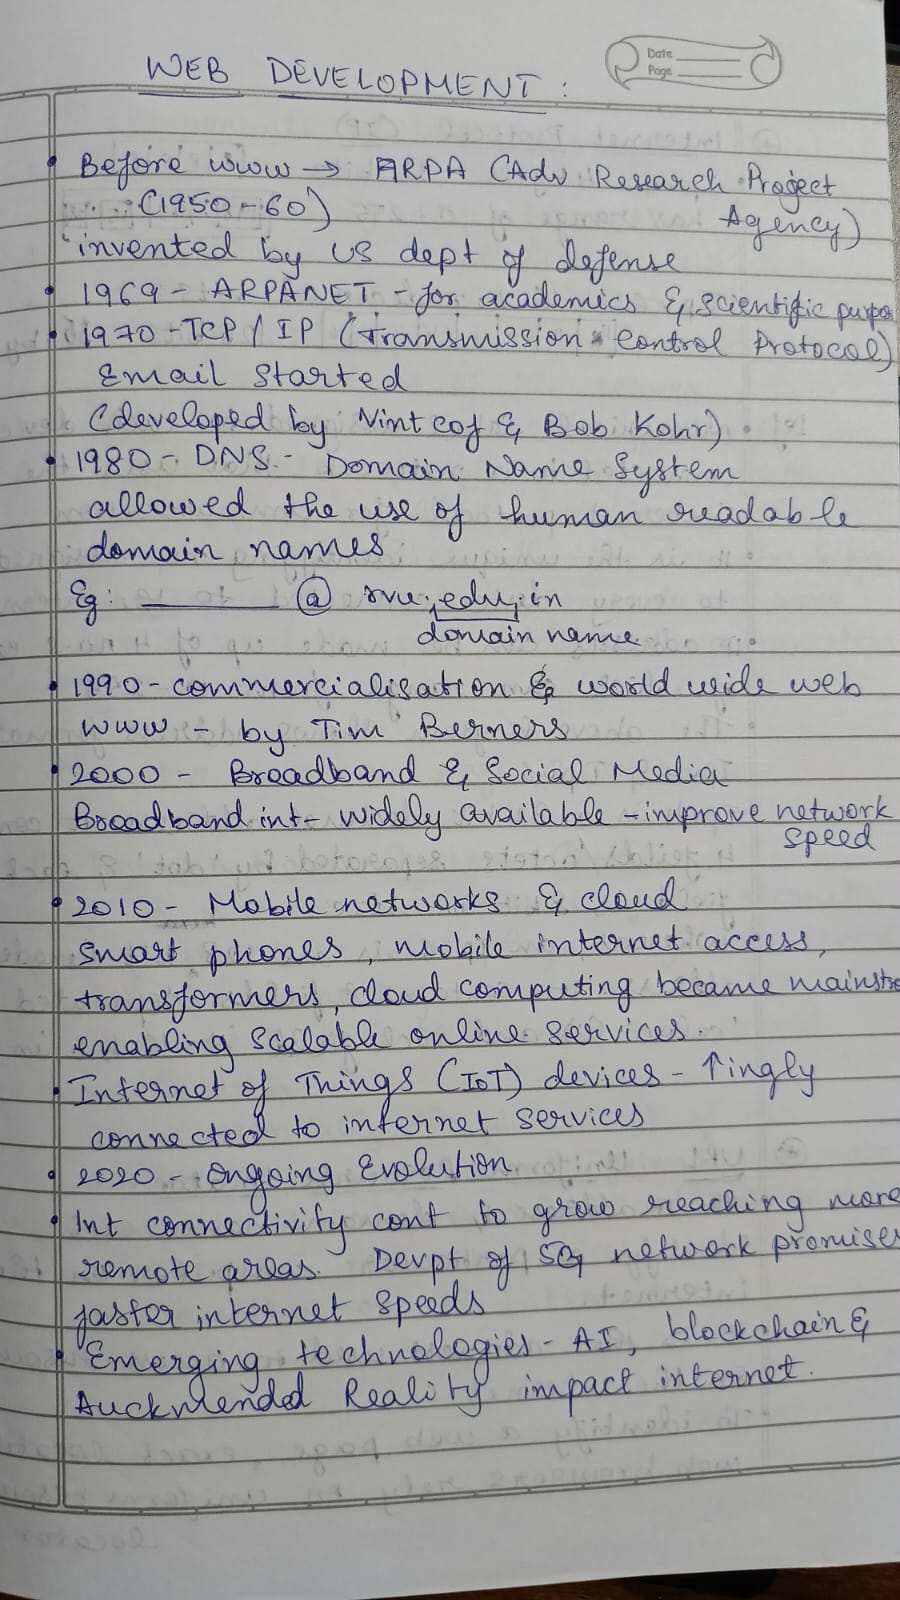 WEB DEVELOPMENT :
Date
Page
• Before www → ARPA (Adv Research Project
(1950-60) Agency)
invented by US dept of defense
• 1969 - ARPANET - for academics & scientific purpos
• 1970 - TCP / IP (Transmission Control Protocol)
Email Started
(developed by Vint cof & Bob Kohr)
• 1980 - DNS - Domain Name System
allowed the use of human readable
domain names
Eg: ________ @ rvu.edu.in
domain name
• 1990 - commercialisation & world wide web
www - by Tim Berners
• 2000 - Broadband & Social Media
Broadband int - widely available - improve network
speed
• 2010 - Mobile networks & cloud
smart phones, mobile internet access,
transformers, cloud computing became mainstre
enabling scalable online services.
• Internet of Things (IoT) devices - ↑ingly
connected to internet services
• 2020 - Ongoing Evolution
• Int connectivity cont to grow reaching more
remote areas. Devpt of 5G network promises
faster internet speeds
• Emerging technologies - AI, blockchain &
Auckmended Reality impact internet.